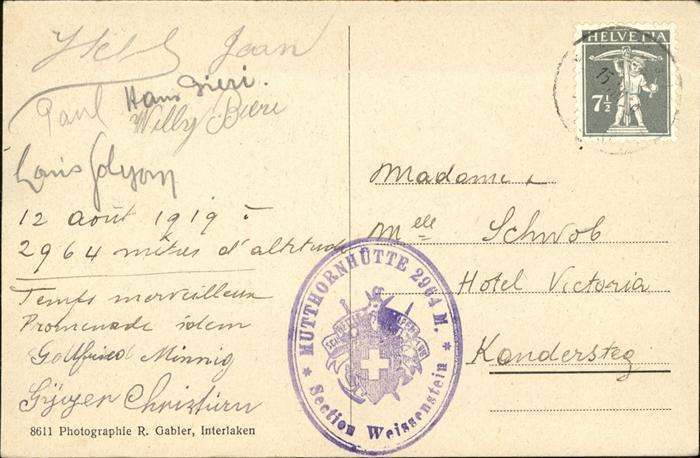 Jean
Paul Hans Bieri.
Willy Bieri
Louis
12 août 1919 à
2964 mètres d'altitude
Temps merveilleux
Promenade idem
Gottfried Minnig
Christian
8611 Photographie R. Gabler, Interlaken
HELVETIA
7½
15
Madame
Melle Schwob
Hotel Victoria
Kandersteg
* MUTTHORNHÜTTE 2964 M. *
Section Weissenstein